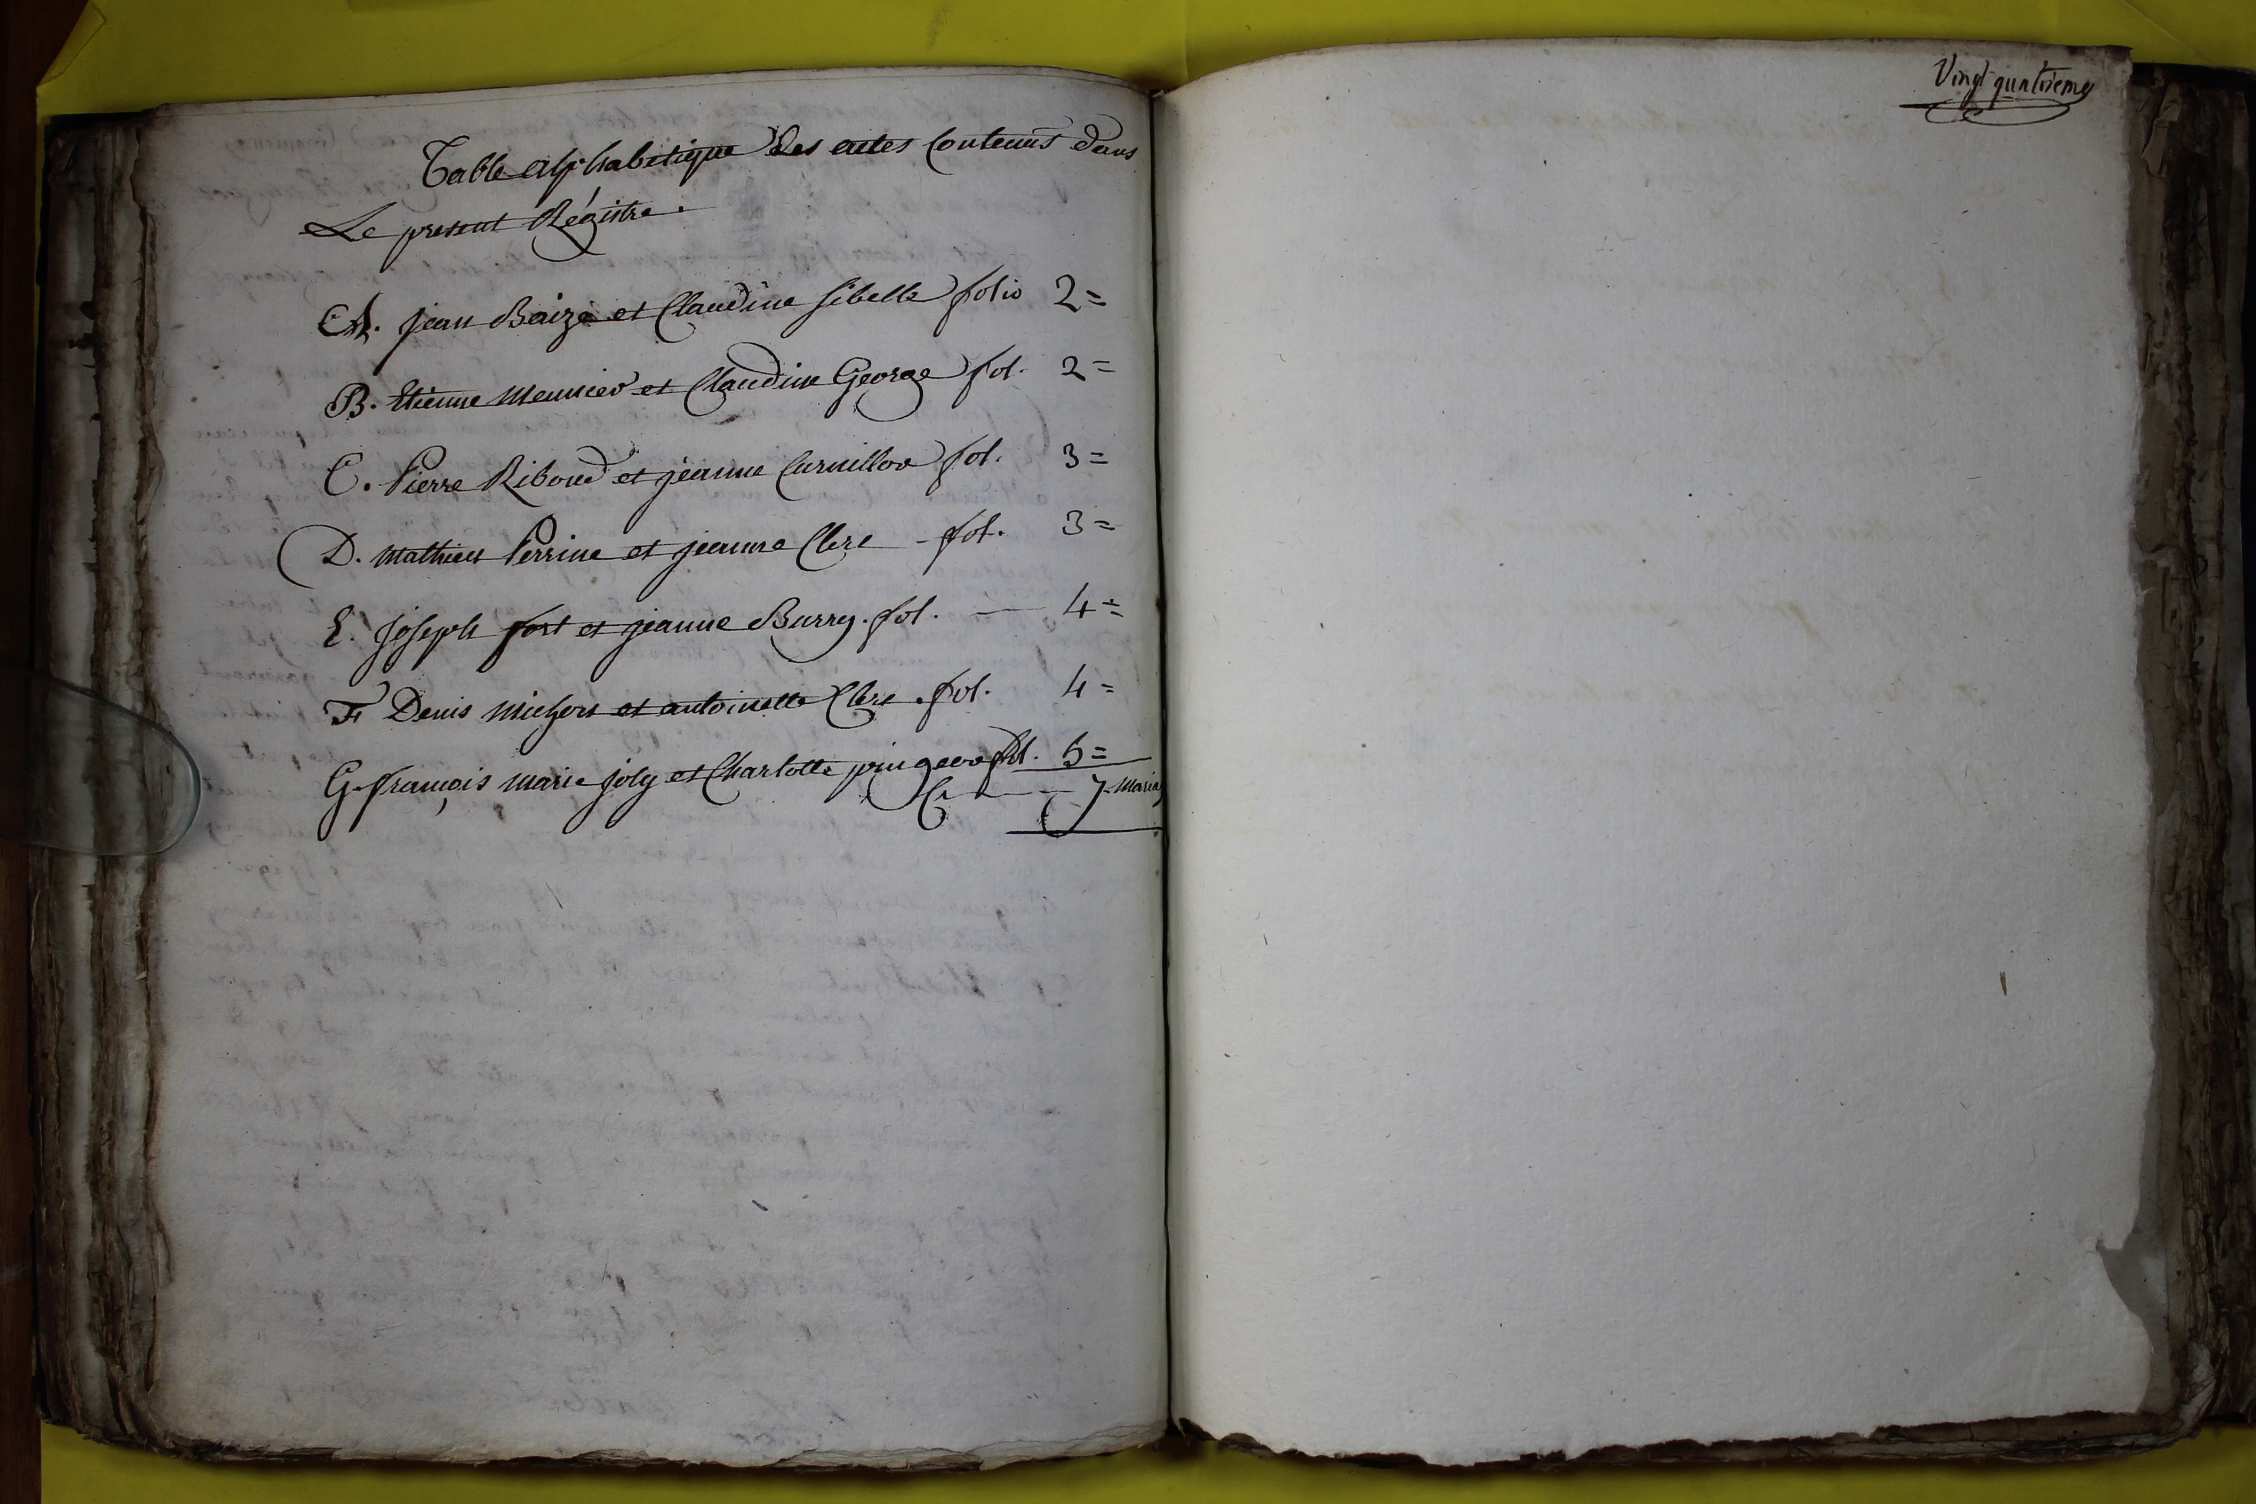 Table alphabétique des actes Contenus dans
Le present Régistre.
A. jean Baizé et Claudine sibelle folio 2=
B. Etienne Meunier et Claudine George fol. 2=
C. Pierre Riboud et jeanne Curnillon fol. 3=
D. Mathieu Perrine et jeanne Clerc - fol. 3=
E. joseph fort et jeanne Burry. fol. — 4=
F Denis Michon et antoinette Clerc. fol. 4=
G. françois marie joly et Charlotte fol. 5=
7. Maria
Vingt quatrieme